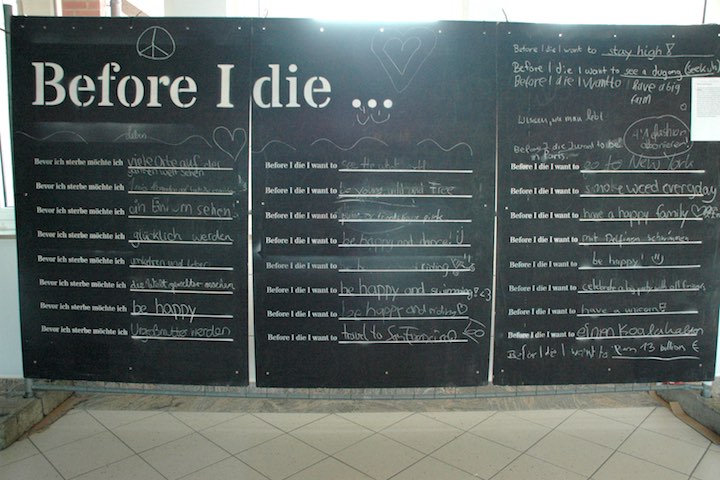 Before I die ...
leben
Bevor ich sterbe möchte ich viele Orte auf der
ganzen Welt sehen
Bevor ich sterbe möchte ich
Bevor ich sterbe möchte ich ein Einhorn sehen!
Bevor ich sterbe möchte ich glücklich werden
Bevor ich sterbe möchte ich
Bevor ich sterbe möchte ich die Welt gerechter machen
Bevor ich sterbe möchte ich be happy
Bevor ich sterbe möchte ich Urgroßmutter werden
Before I die I want to see the whole world
Before I die I want to be young, wild and Free
Before I die I want to
Before I die I want to be happy and dance! :)
Before I die I want to riding
Before I die I want to be happy and swimming! <3
Before I die I want to be happy and riding ♡
Before I die I want to travel to San Francisco
Before I die I want to stay high!
Before I die I want to see a dugong (Seekuh)
Before I die I want to have a big
farm
Wissen, wie man lebt
fashion
Before I die I want to be
in Paris
Before I die I want to go to New York
Before I die I want to smoke weed everyday
Before I die I want to have a happy family
Before I die I want to mit Delfinen schwimmen
Before I die I want to be happy! :)
Before I die I want to celebrate a big party with all friends
Before I die I want to have a
Before I die I want to einen Koala halten
Before I die I want to 13 billion €